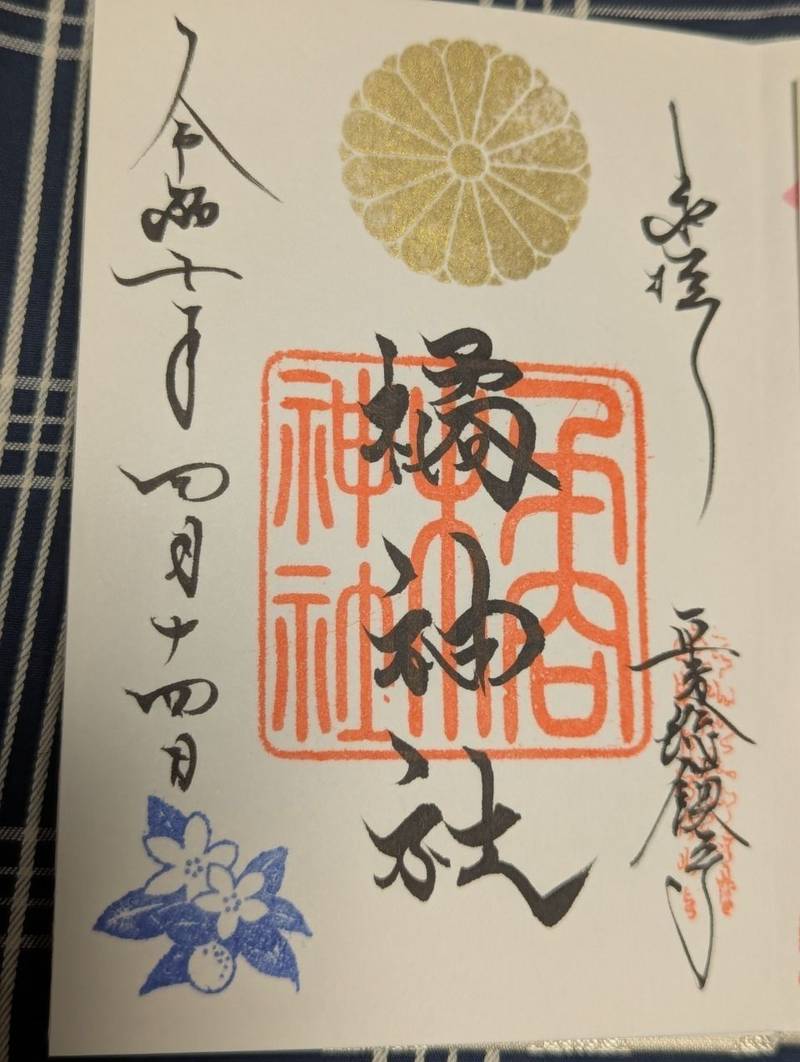 奉拝
橘神社
橘神社
令和七年四月十四日